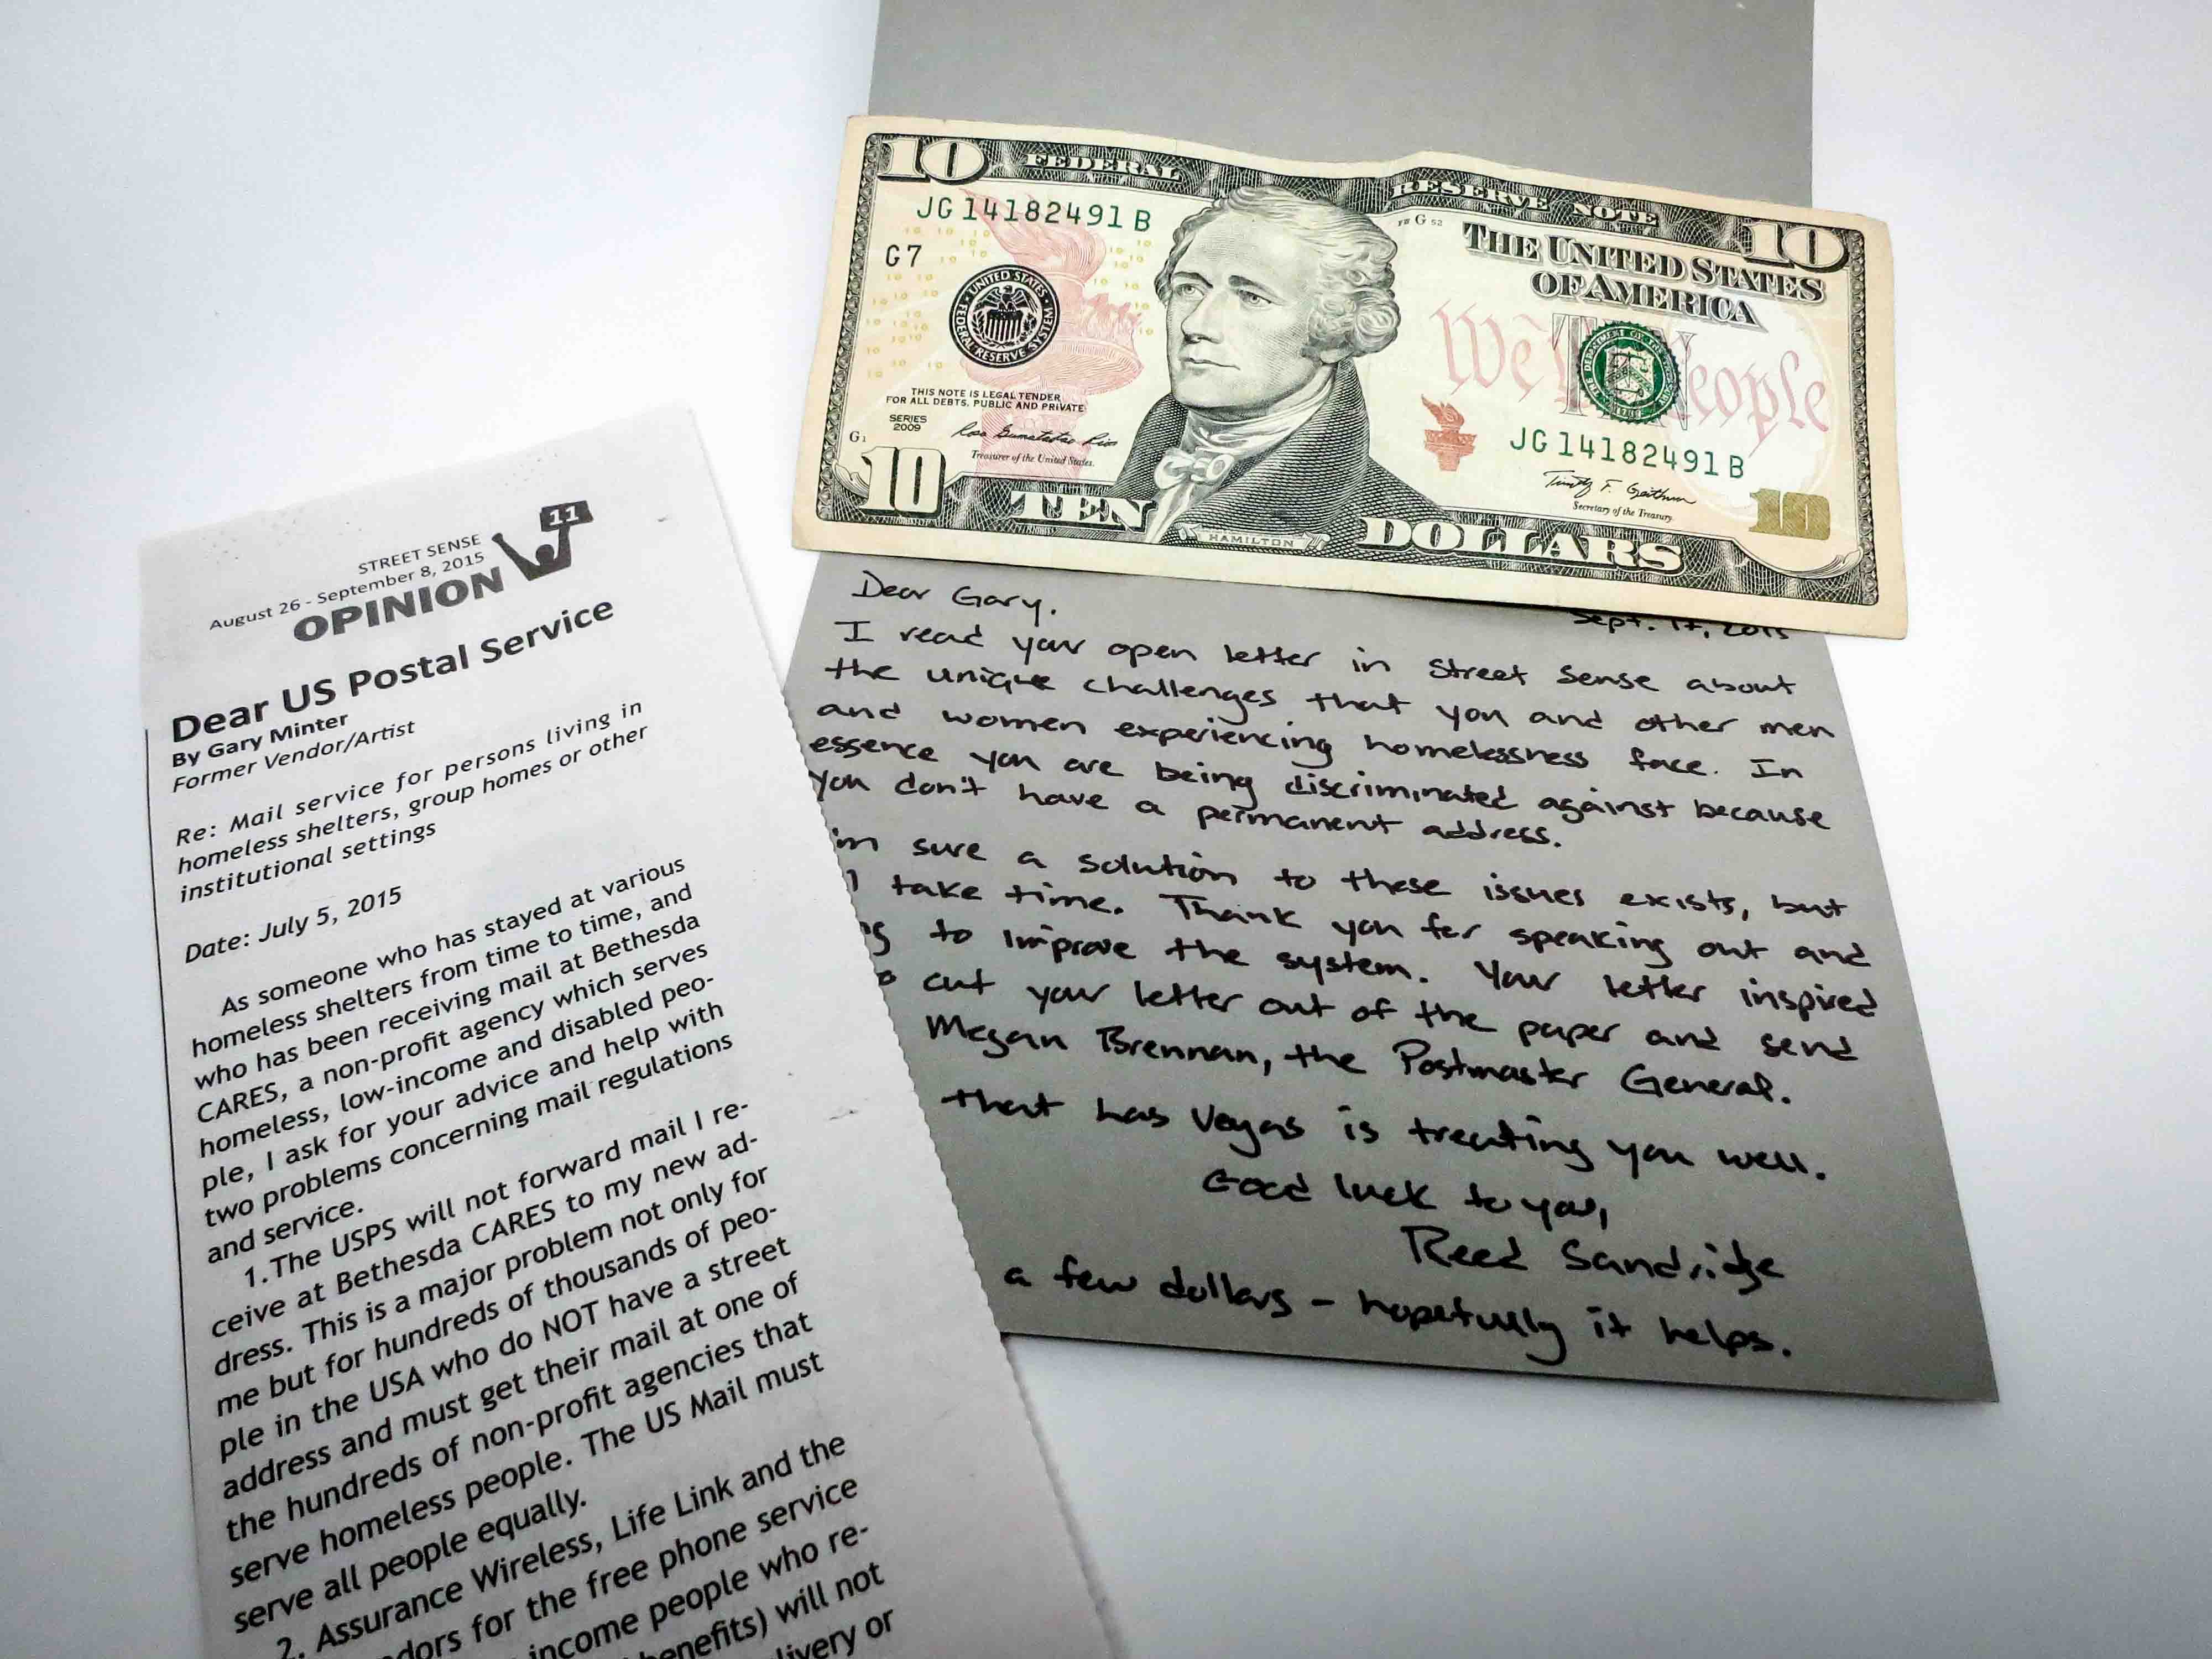 STREET SENSE
August 26 - September 8, 2015
11
OPINION
Dear US Postal Service
By Gary Minter
Former Vendor/Artist
Re: Mail service for persons living in
homeless shelters, group homes or other
institutional settings
Date: July 5, 2015
As someone who has stayed at various
homeless shelters from time to time, and
who has been receiving mail at Bethesda
CARES, a non-profit agency which serves
homeless, low-income and disabled peo-
ple, I ask for your advice and help with
two problems concerning mail regulations
and service.
1.The USPS will not forward mail I re-
ceive at Bethesda CARES to my new ad-
dress. This is a major problem not only for
me but for hundreds of thousands of peo-
ple in the USA who do NOT have a street
address and must get their mail at one of
the hundreds of non-profit agencies that
serve homeless people. The US Mail must
serve all people equally.
2. Assurance Wireless, Life Link and the
for the free phone service
income people who re-
benefits) will not
or
10 FEDERAL RESERVE NOTE 10
JG 14182491 B
FW G 52
G7
THE UNITED STATES
OF AMERICA
UNITED STATES FEDERAL RESERVE SYSTEM
We The People
THIS NOTE IS LEGAL TENDER
FOR ALL DEBTS, PUBLIC AND PRIVATE
SERIES
2009
G1
Treasurer of the United States.
JG 14182491 B
Secretary of the Treasury.
10 TEN HAMILTON DOLLARS 10
Dear Gary.
Sept. 17, 2015
I read your open letter in Street Sense about
the unique challenges that you and other men
and women experiencing homelessness face. In
essence you are being discriminated against because
you don't have a permanent address.
sure a solution to these issues exists, but
take time. Thank you for speaking out and
to improve the system. Your letter inspired
cut your letter out of the paper and send
Megan Brennan, the Postmaster General.
that Las Vegas is treating you well.
Good luck to you,
Reed Sandridge
a few dollars – hopefully it helps.